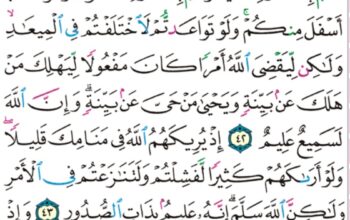 أَسْفَلَ مِنكُمْ ۚ وَلَوْ تَوَاعَدتُّمْ لَٱخْتَلَفْتُمْ فِى ٱلْمِيعَٰدِ ۙ
وَلَٰكِن لِّيَقْضِىَ ٱللَّهُ أَمْرًا كَانَ مَفْعُولًا لِّيَهْلِكَ مَنْ
هَلَكَ عَنۢ بَيِّنَةٍ وَيَحْيَىٰ مَنْ حَىَّ عَنۢ بَيِّنَةٍ ۗ وَإِنَّ ٱللَّهَ
لَسَمِيعٌ عَلِيمٌ ٤٢ إِذْ يُرِيكَهُمُ ٱللَّهُ فِى مَنَامِكَ قَلِيلًا ۖ
وَلَوْ أَرَىٰكَهُمْ كَثِيرًا لَّفَشِلْتُمْ وَلَتَنَٰزَعْتُمْ فِى ٱلْأَمْرِ
وَلَٰكِنَّ ٱللَّهَ سَلَّمَ ۗ إِنَّهُۥ عَلِيمٌۢ بِذَاتِ ٱلصُّدُورِ ٤٣ وَإِذْ